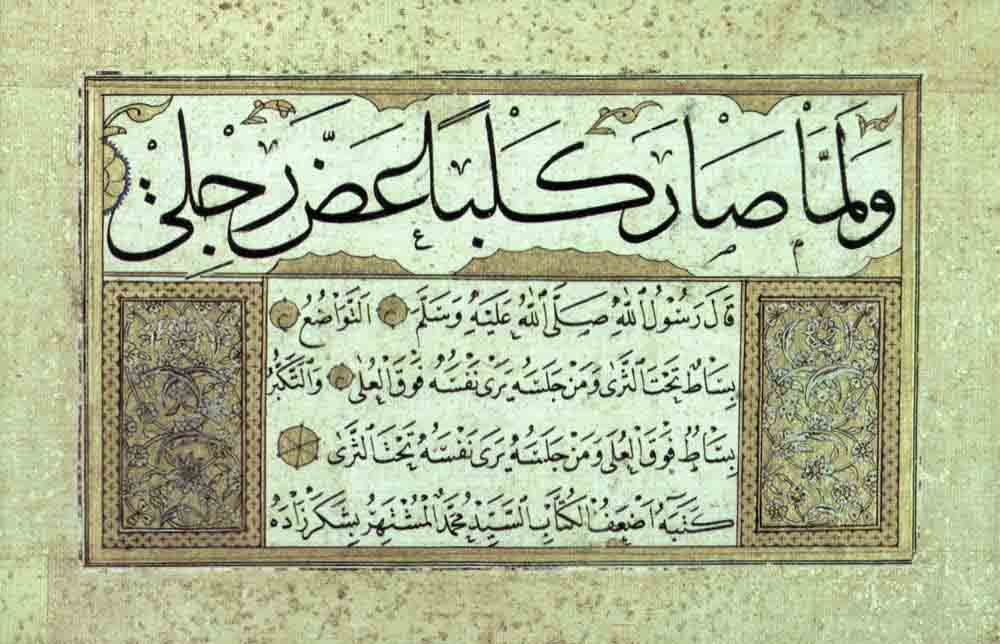 وَلَمَّا صَارَ كَلْبًا عَضَّ رِجْلِي
قَالَ رَسُولُ اللّٰهِ صَلَّى اللّٰهُ عَلَيْهِ وَسَلَّمَ التَّوَاضُعُ
بِسَاطٌ تَحْتَ الثَّرٰى وَمَنْ جَلَسَهُ يَرٰى نَفْسَهُ فَوْقَ الْعُلٰى وَالتَّكَبُّرُ
بِسَاطٌ فَوْقَ الْعُلٰى وَمَنْ جَلَسَهُ يَرٰى نَفْسَهُ تَحْتَ الثَّرٰى
كَتَبَهُ اَضْعَفُ الْكُتَّابِ السَّيِّدُ مُحَمَّدُ الْمُشْتَهِرُ بِشَكَرْزَادَهْ